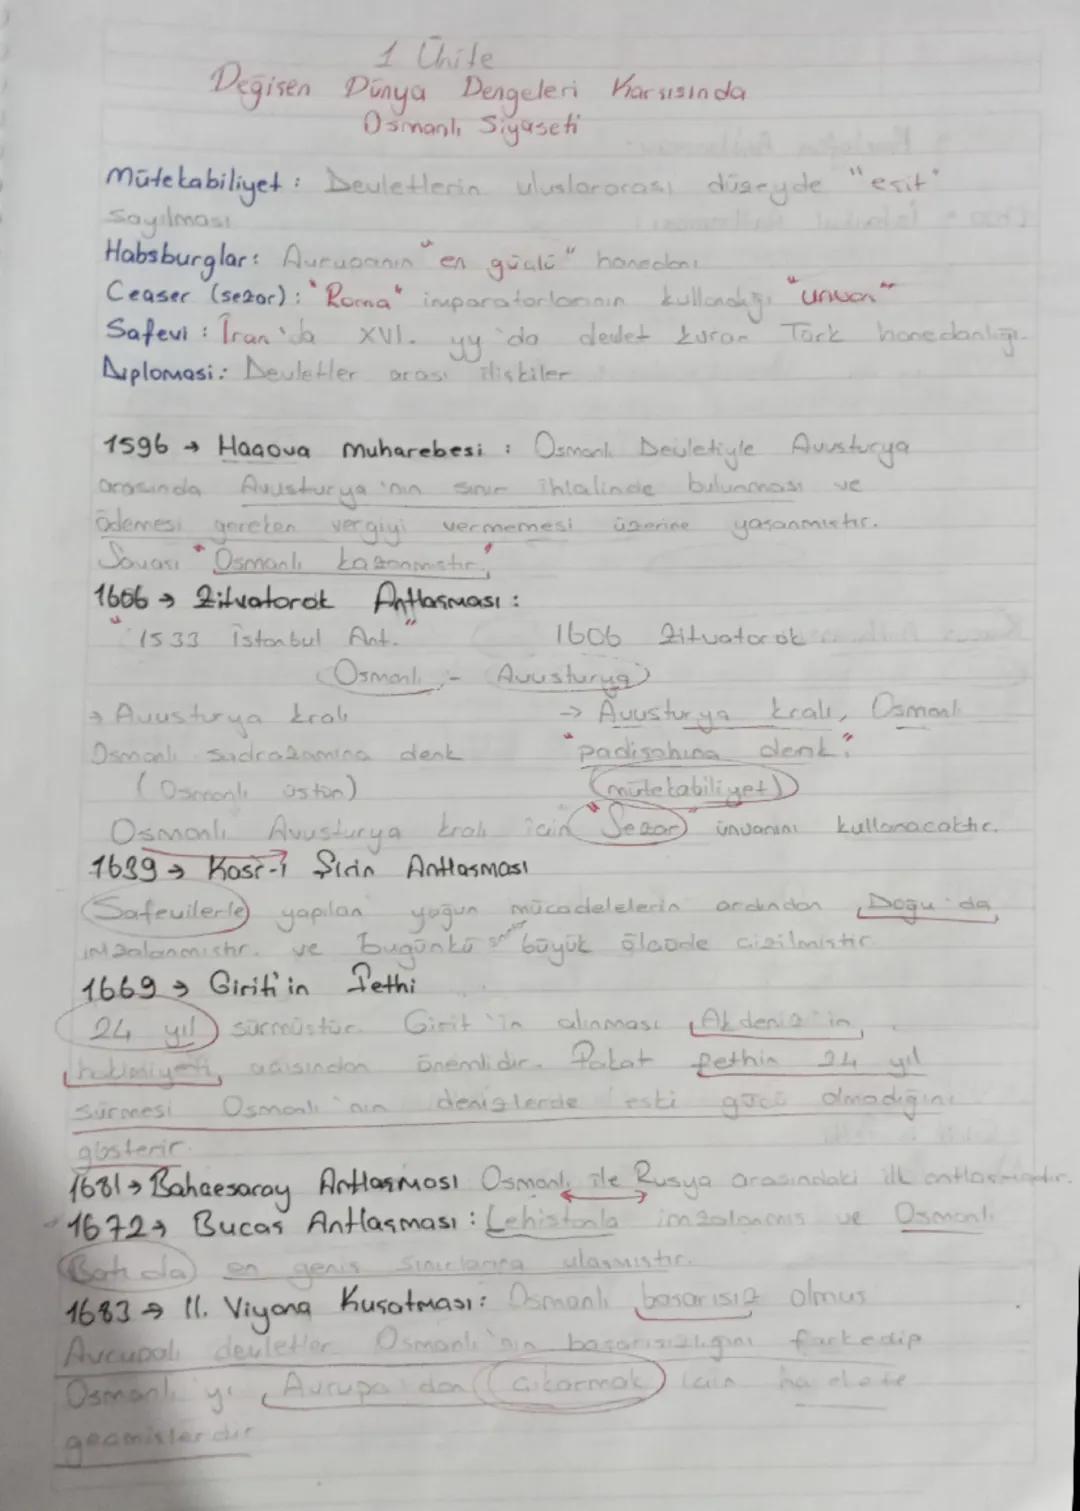 1 Ünite
Değisen Dünya Dengeleri Karsısında
Osmanlı Siyaseti
Mütekabiliyet : Devletlerin uluslararası düzeyde "esit"
Sayılması
Habsburglar: Avrupanın "en güçlü" hanedanı
Ceaser (sezar) : "Roma" imparatorlarının kullandığı "unvan"
Safevi : İran'da XVI. yy'da devlet kuran Türk hanedanlığı.
Diplomasi : Devletler arası ilişkiler
1596 → Haçova Muharebesi : Osmanlı Devletiyle Avusturya
arasında Avusturya'nın sınır ihlalinde bulunması ve
ödemesi gereken vergiyi vermemesi üzerine yaşanmıştır.
Savası "Osmanlı kazanmıstır."
1606 → Zitvatorok Antlasması :
"1533 İstanbul Ant." 1606 Zitvatorok
Osmanlı - Avusturya
→ Avusturya kralı → Avusturya kralı, Osmanlı
Osmanlı sadrazamına denk "padişahına denk."
(Osmanlı üstün) (mütekabiliyet)
Osmanlı Avusturya kralı için "Sezar" ünvanını kullanacaktır.
1639 → Kasr-ı Şirin Antlasması
Safevilerle yapılan yoğun mücadelelerin ardından Doğu'da
imzalanmıstır. ve bugünkü sınır büyük ölçüde çizilmiştir
1669 → Girit'in Fethi
24 yıl sürmüstür. Girit'in alınması Akdeniz'in
hakimiyeti açısından önemlidir. Fakat fethin 24 yıl
sürmesi Osmanlı'nın denizlerde eski gücü olmadığını
gösterir.
1681 → Bahçesaray Antlaşması Osmanlı ile Rusya arasındaki ilk antlaşmadır.
1672 → Bucaş Antlaşması : Lehistanla imzalanmıs ve Osmanlı
Batı'da en geniş sınırlarına ulaşmıştır.
1683 → II. Viyana Kuşatması : Osmanlı başarısız olmuş
Avrupalı devletler Osmanlı'nın başarısızlığını farkedip
Osmanlı'yı Avrupa'dan çıkarmak için harekete
geçmişlerdir